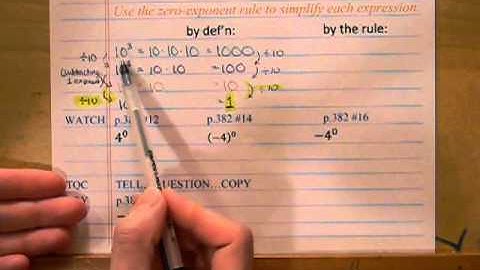 Use the zero-exponent rule to simplify each expression
by def'n: by the rule:
÷10 10³ = 10·10·10 = 1000 ÷10
= 10·10 = 100 ÷10
(subtracting 1 exponent)
= 10 ÷10
÷10 10 = 1
WATCH p.382 #12 p.382 #14 p.382 #16
4⁰ (-4)⁰ -4⁰
TOC TELL...QUESTION...COPY